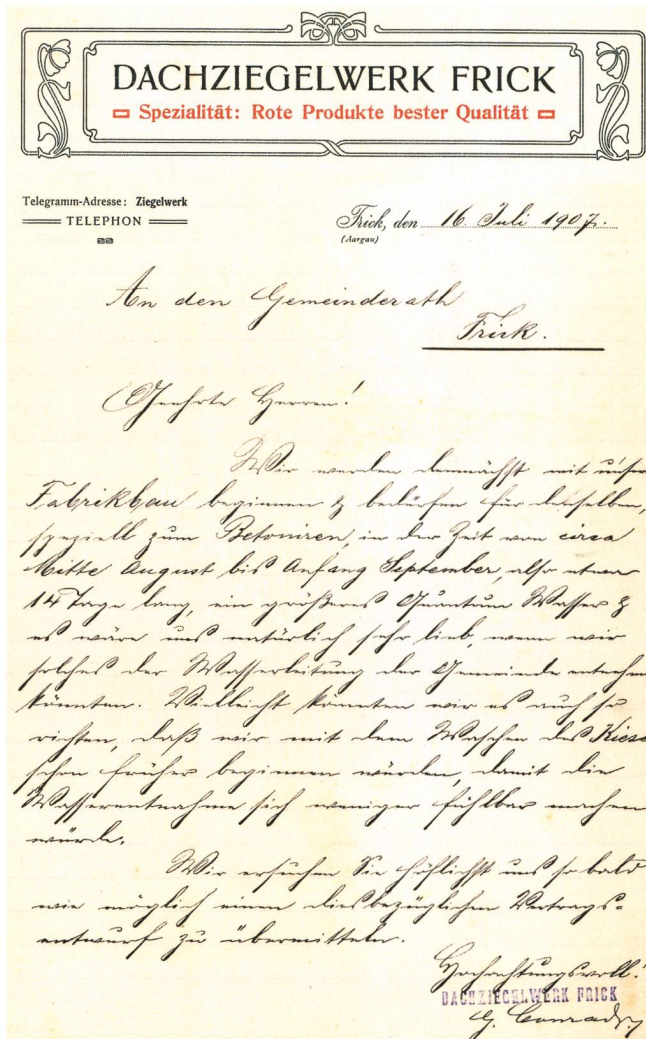 DACHZIEGELWERK FRICK
Spezialität: Rote Produkte bester Qualität
Telegramm-Adresse: Ziegelwerk
TELEPHON
Frick, den 16 Juli 1907.
(Aargau)
An den Gemeinderath
Frick.
Geehrte Herren!
Wir werden demnächst mit unser
Fabrikbau beginnen & bedürfen für denselben,
speziell zum Betoniren, in der Zeit von circa
Mitte August bis Anfang September, also etwa
14 Tage lang, ein größeres Quantum Wasser &
es wäre uns natürlich sehr lieb, wenn wir
solches der Wasserleitung der Gemeinde entnehm
könnten. Vielleicht könnten wir es auch so
richten, daß wir mit dem Waschen des Kieses
schon früher beginnen würden, damit die
Wasserentnahme sich weniger fühlbar machen
würde.
Wir ersuchen Sie höflichst uns so bald
wie möglich einen diesbezüglichen Vertrags-
entwurf zu übermitteln.
Hochachtungsvoll!
DACHZIEGELWERK FRICK